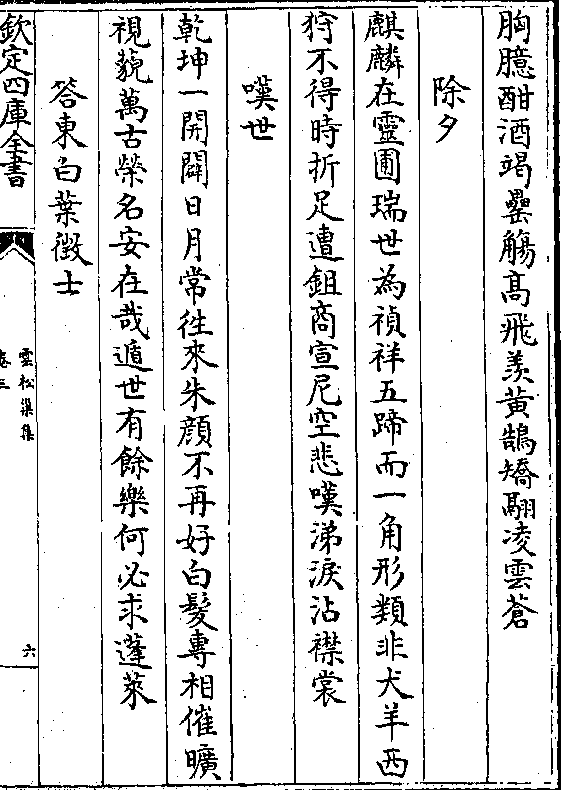 胸臆酣酒竭罍觴高飛羡黄鵠矯翮凌雲蒼
除夕
麒麟在靈圃瑞世為禎祥五蹄而一角形類非犬羊西
狩不得時折足遭鉏商宣尼空悲嘆涕淚沾襟裳
嘆世
乾坤一開闢日月常徃來朱顔不再好白髪專相催曠
視藐萬古榮名安在哉遁世有餘樂何必求蓬萊
答東白葉徴士
欽定四庫全書
雲松巢集
卷三
六